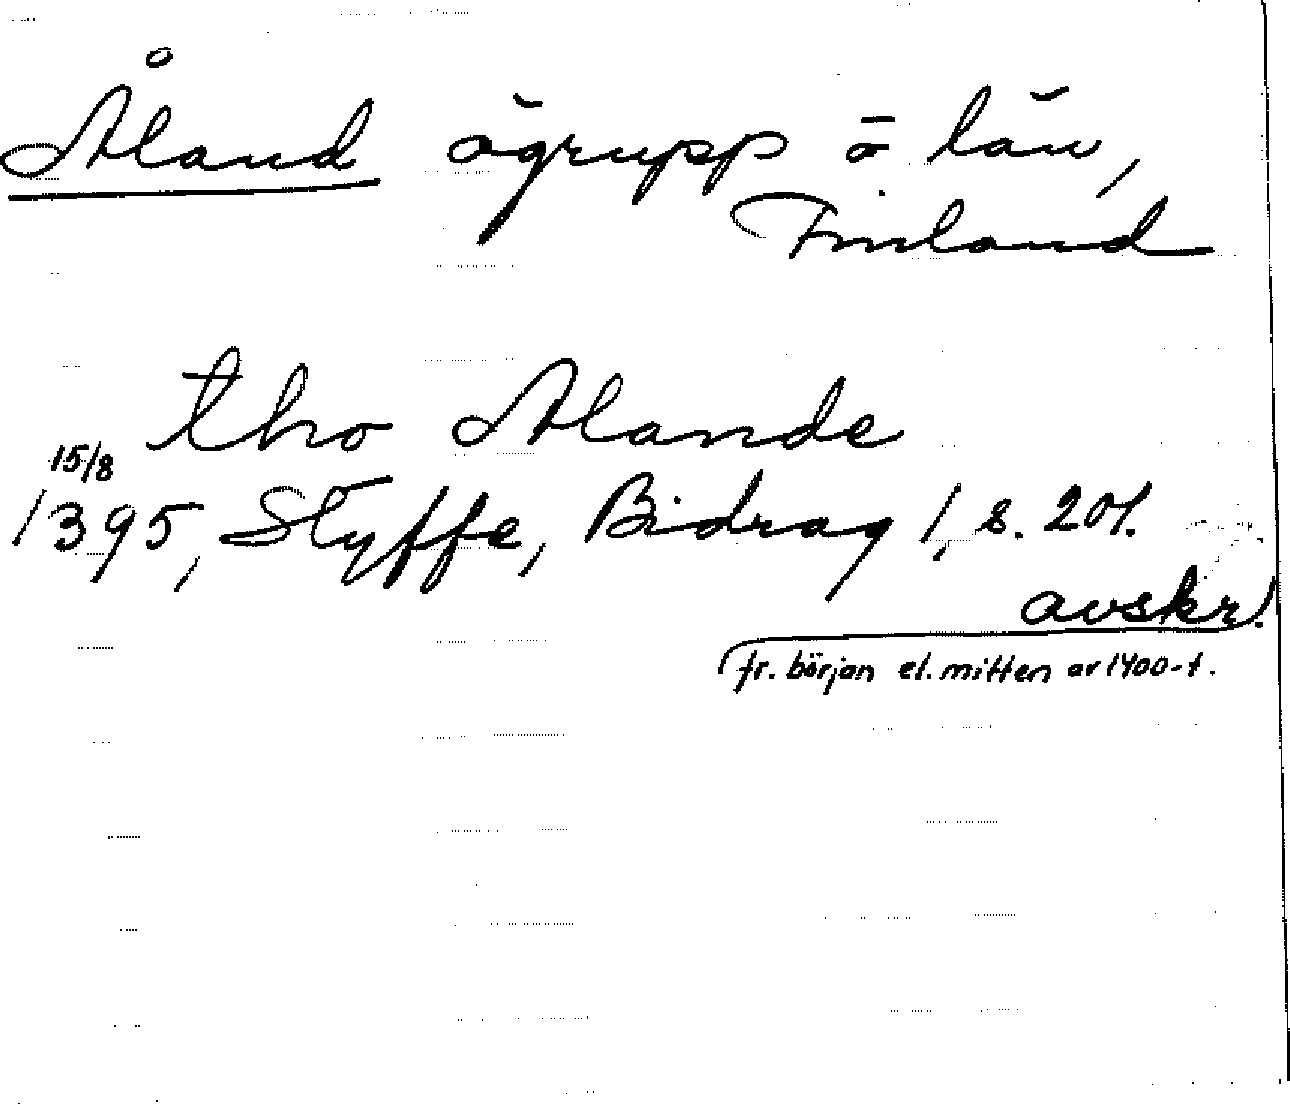 Åland ögrupp o län,
Finland
tho Alande
15/8
1395, Styffe, Bidrag 1, s. 201.
avskr.
fr. början el. mitten av 1400-t.